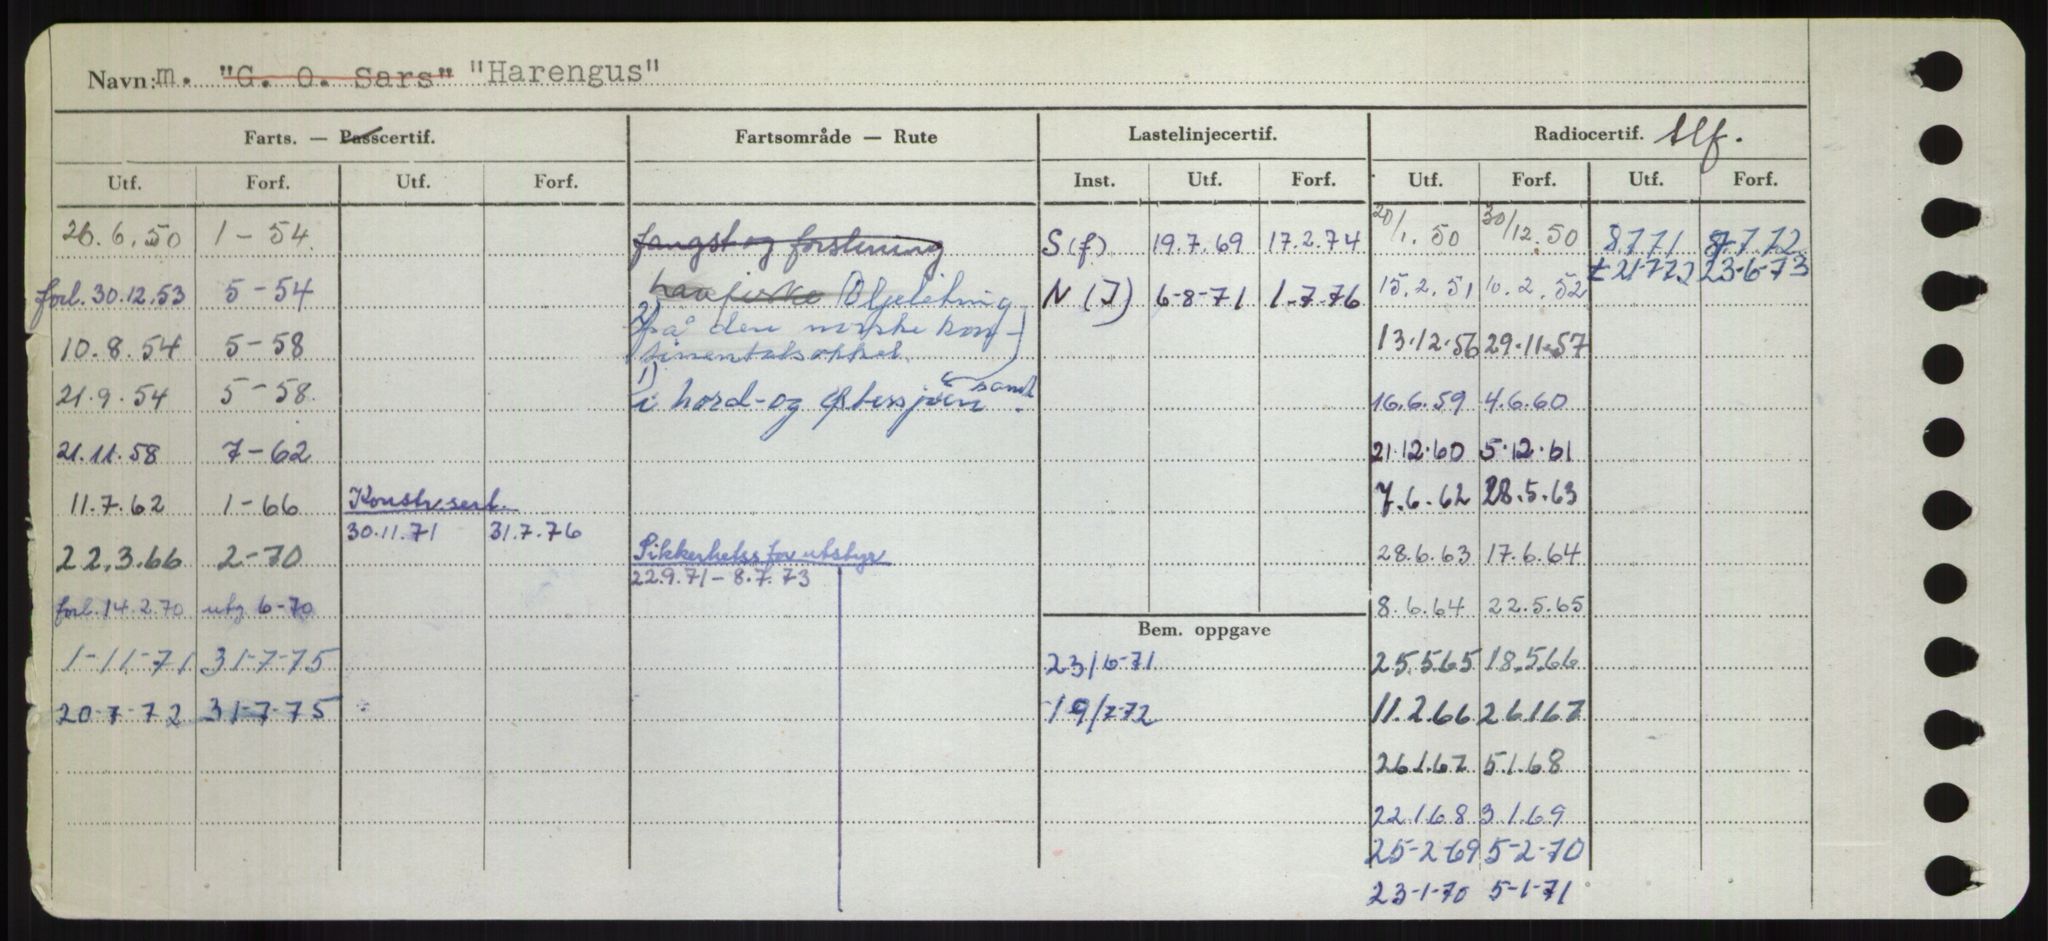 Navn: m. "G. O. Sars" "Harengus"
Farts. — Passcertif. Fartsområde — Rute Lastelinjecertif. Radiocertif. tlf.
Utf. Forf. Utf. Forf. Inst. Utf. Forf. Utf. Forf. Utf. Forf.
26.6.50 1-54 fangst og forskning S(f) 19.7.69 17.2.74 20/1.50 30/12.50 8.7.71 8.7.72
21-7-72 23-6-73
forl. 30.12.53 5-54 havfiske Oljeleting N(I) 6-8-71 1-7-76 15.2.51 10.2.52
2) på den norske kon-
10.8.54 5-58 tinentalsokkel. 13.12.56 29.11.57
21.9.54 5-58 1) i Nord- og Østersjøen samt 16.6.59 4.6.60
21.11.58 7-62 21.12.60 5.12.61
11.7.62 1-66 Konstr.sert. 7.6.62 28.5.63
30.11.71 31.7.76
22.3.66 2-70 Sikkerhetss for utstyr 28.6.63 17.6.64
22.9.71 - 8.7.73
forl. 14.2.70 utg 6-70 8.6.64 22.5.65
Bem. oppgave
1-11-71 31-7-75 23/6-71 25.5.65 18.5.66
20-7-72 31-7-75 19/7-72 11.2.66 26.1.67
26.1.67 5.1.68
22.1.68 3.1.69
25-2-69 5-2-70
23-1-70 5-1-71